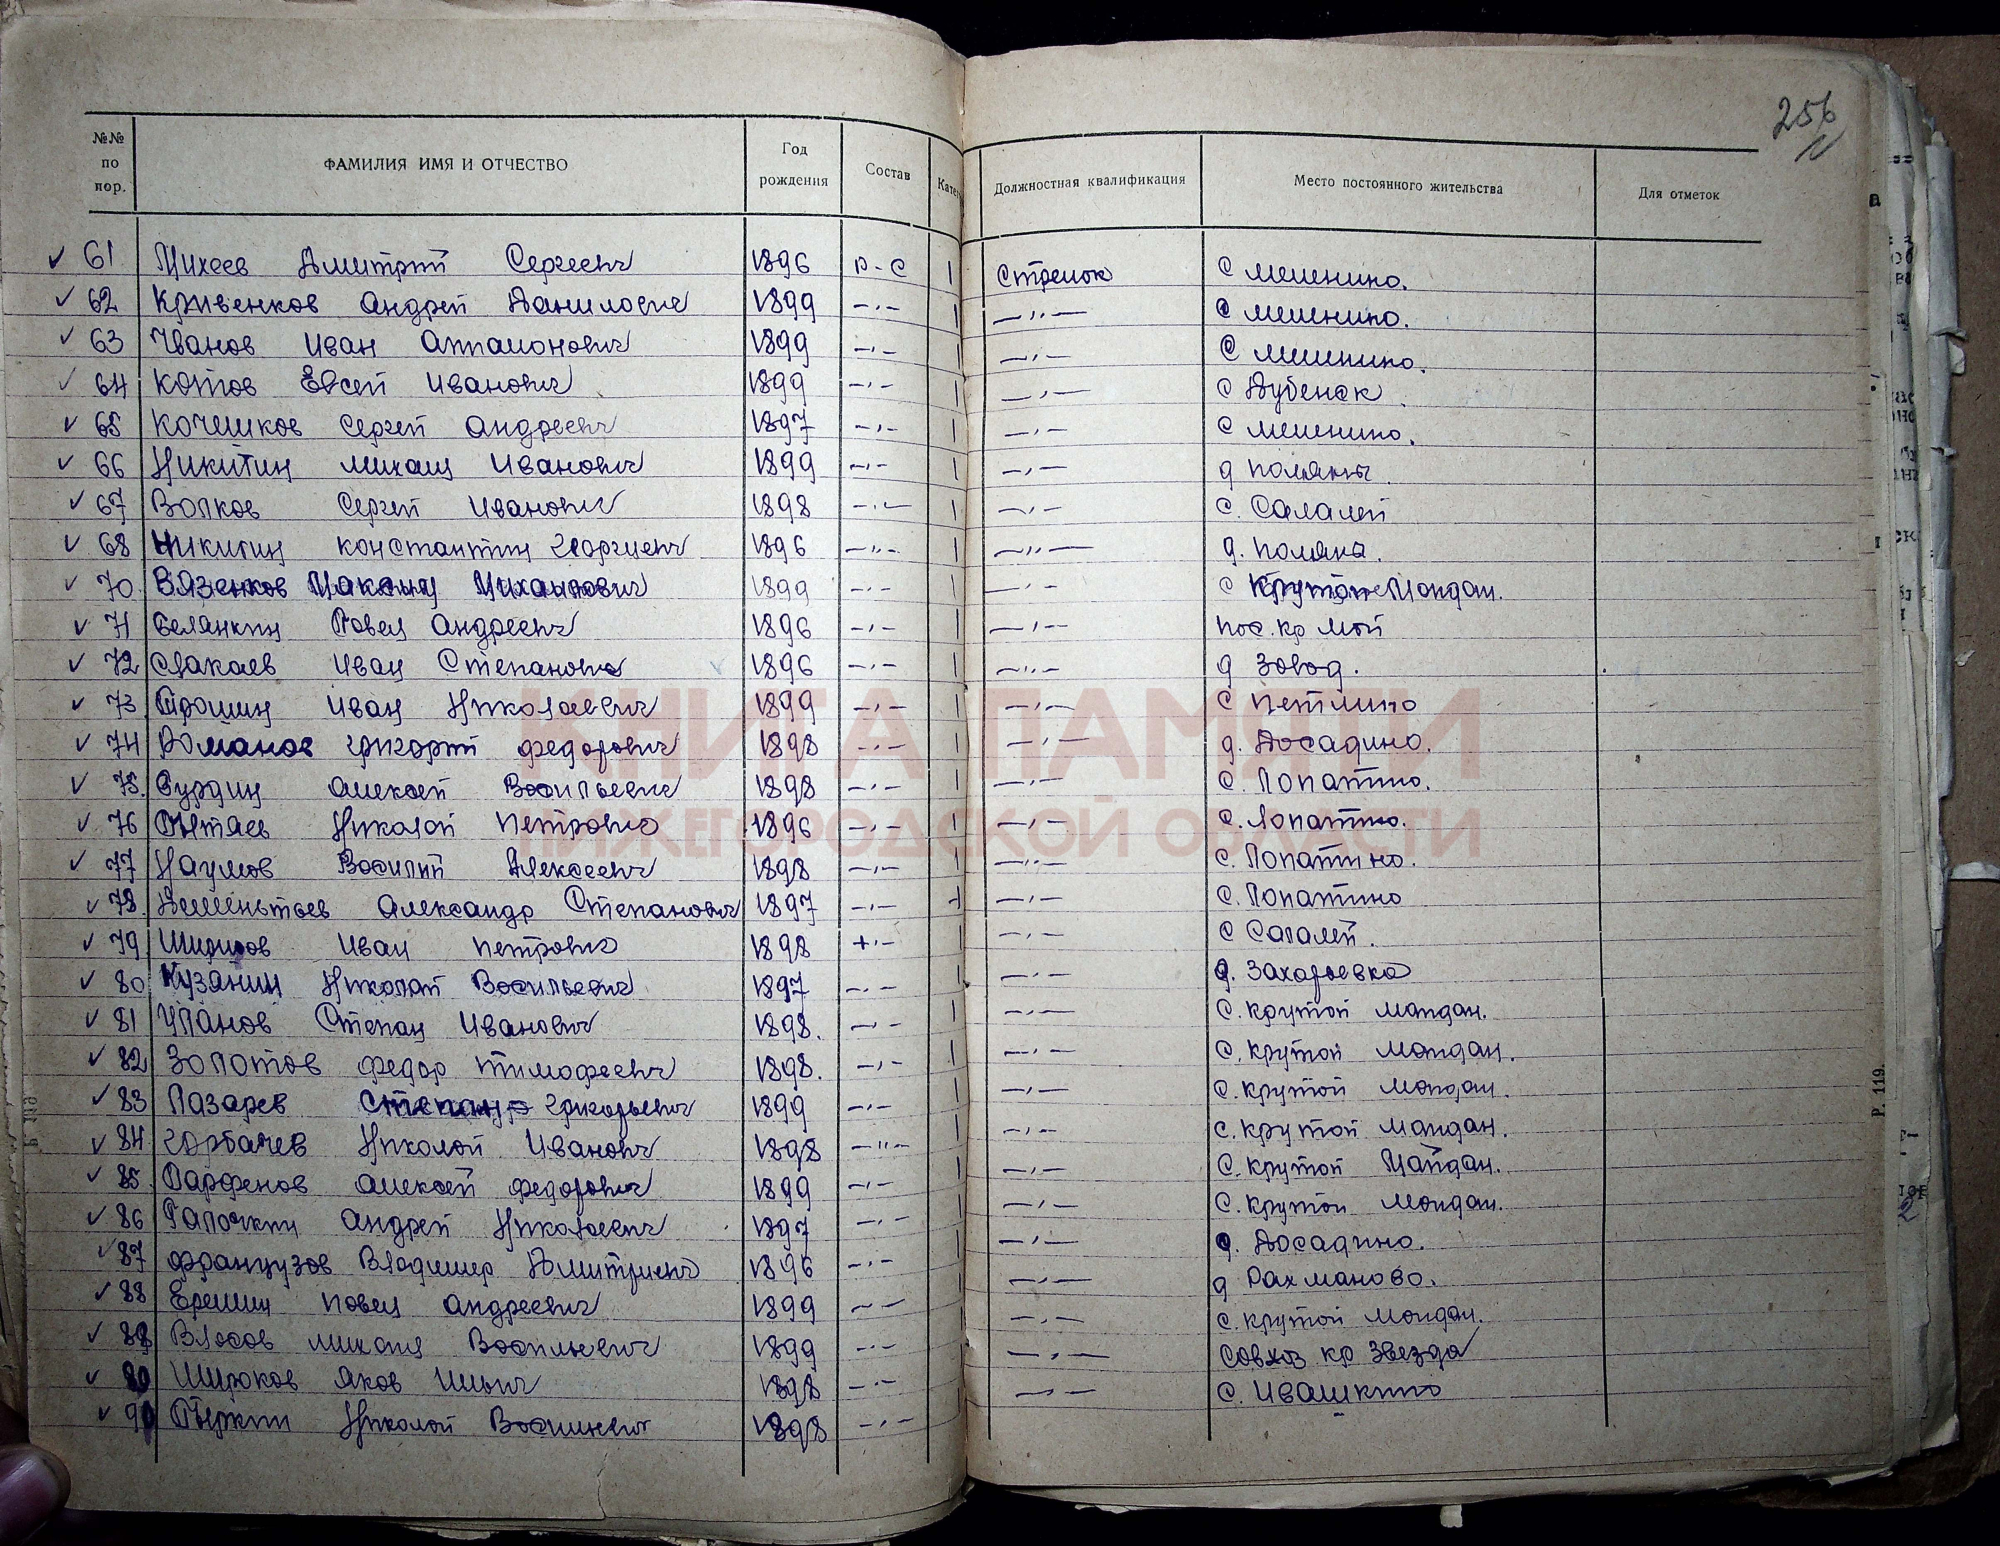 256
№№ по пор. ФАМИЛИЯ ИМЯ И ОТЧЕСТВО Год рождения Состав Катег Должностная квалификация Место постоянного жительства Для отметок
61 Михеев Дмитрий Сергеевич 1896 Р-С 1 Стрелок с мешкино.
62 Кривенков Андрей Данилович 1899 —〃— 1 —〃—
63 Иванов Иван 1899 —〃— 1 —〃—
64 Котов Евсей Иванович 1899 —〃— 1 —〃— с Дубенск
65 Кочешков Сергей Андреевич 1897 —〃— 1 —〃—
66 Никитин Михаил Иванович 1899 —〃— 1 —〃— д поляны
67 Волков Сергей Иванович 1898 —〃— 1 —〃— с. Салалей
68 Никитин Константин Георгиевич 1896 —〃— 1 —〃— д. поляна.
70 Вязенков Максим Михайлович 1899 —〃— 1 —〃— с Крутой Майдан.
71 Белянкин Павел Андреевич 1896 —〃— 1 —〃— пос. кр май
72 Иван Степанович 1896 —〃— 1 —〃— д Завод.
73 Трошин Иван Николаевич 1899 —〃— 1 —〃— с Петлино
74 Романов Григорий Федорович 1898 —〃— 1 —〃— д. Досадино.
75. Алексей Васильевич 1898 —〃— 1 —〃— с. Лопатино.
76 Николай Петрович 1896 —〃— 1 —〃— с. Лопатино.
77 Наумов Василий Алексеевич 1898 —〃— 1 —〃— с. Лопатино.
78. Александр Степанович 1897 —〃— 1 —〃— с. Лопатино
79 Иван Петрович 1898 —〃— 1 —〃— с Салалей.
80 Кузянин Николай Васильевич 1897 —〃— 1 —〃— д. Захарьевка
81 Степан Иванович 1898. —〃— 1 —〃— с. Крутой майдан.
82 Золотов Федор Тимофеевич 1898. —〃— 1 —〃— с. Крутой майдан.
83 Лазарев Степан Григорьевич 1899 —〃— 1 —〃— с. Крутой майдан.
84 Горбачев Николай Иванович 1898 —〃— 1 —〃— с. Крутой майдан.
85 Парфенов Алексей Федорович 1899 —〃— 1 —〃— с. Крутой Майдан.
86 Галочкин Андрей Николаевич 1897 —〃— 1 —〃— с. Крутой майдан.
87 Французов Владимир Дмитриевич 1896 —〃— 1 —〃— д. Досадино.
88 Еремин Павел Андреевич 1899 —〃— 1 —〃— д Рахманово.
89 Власов Михаил Васильевич 1899 —〃— 1 —〃— с. Крутой майдан.
90 Широков Яков Ильич 1898 —〃— 1 —〃— совхоз кр Звезда
91 Николай Васильевич 1898 —〃— 1 —〃— с. Ивашкино
Р. 119.
КНИГА ПАМЯТИ
НИЖЕГОРОДСКОЙ ОБЛАСТИ